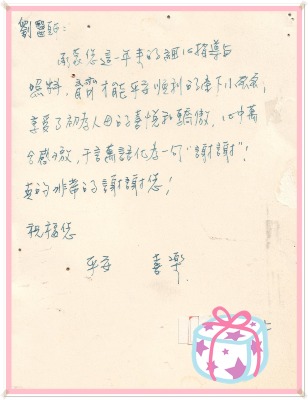 劉醫師:
承蒙您這一年來的細心指導與
照料, 才能平安順利的產下小
享受了初為人母的喜悅和驕傲, 心中萬
分感激, 千言萬語化為一句"謝謝"!
真的非常的謝謝您!
祝福您
平安 喜樂